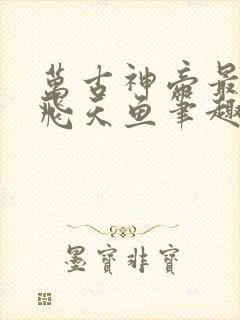 萬古神帝最
飛天魚筆趣
墨寶非寶